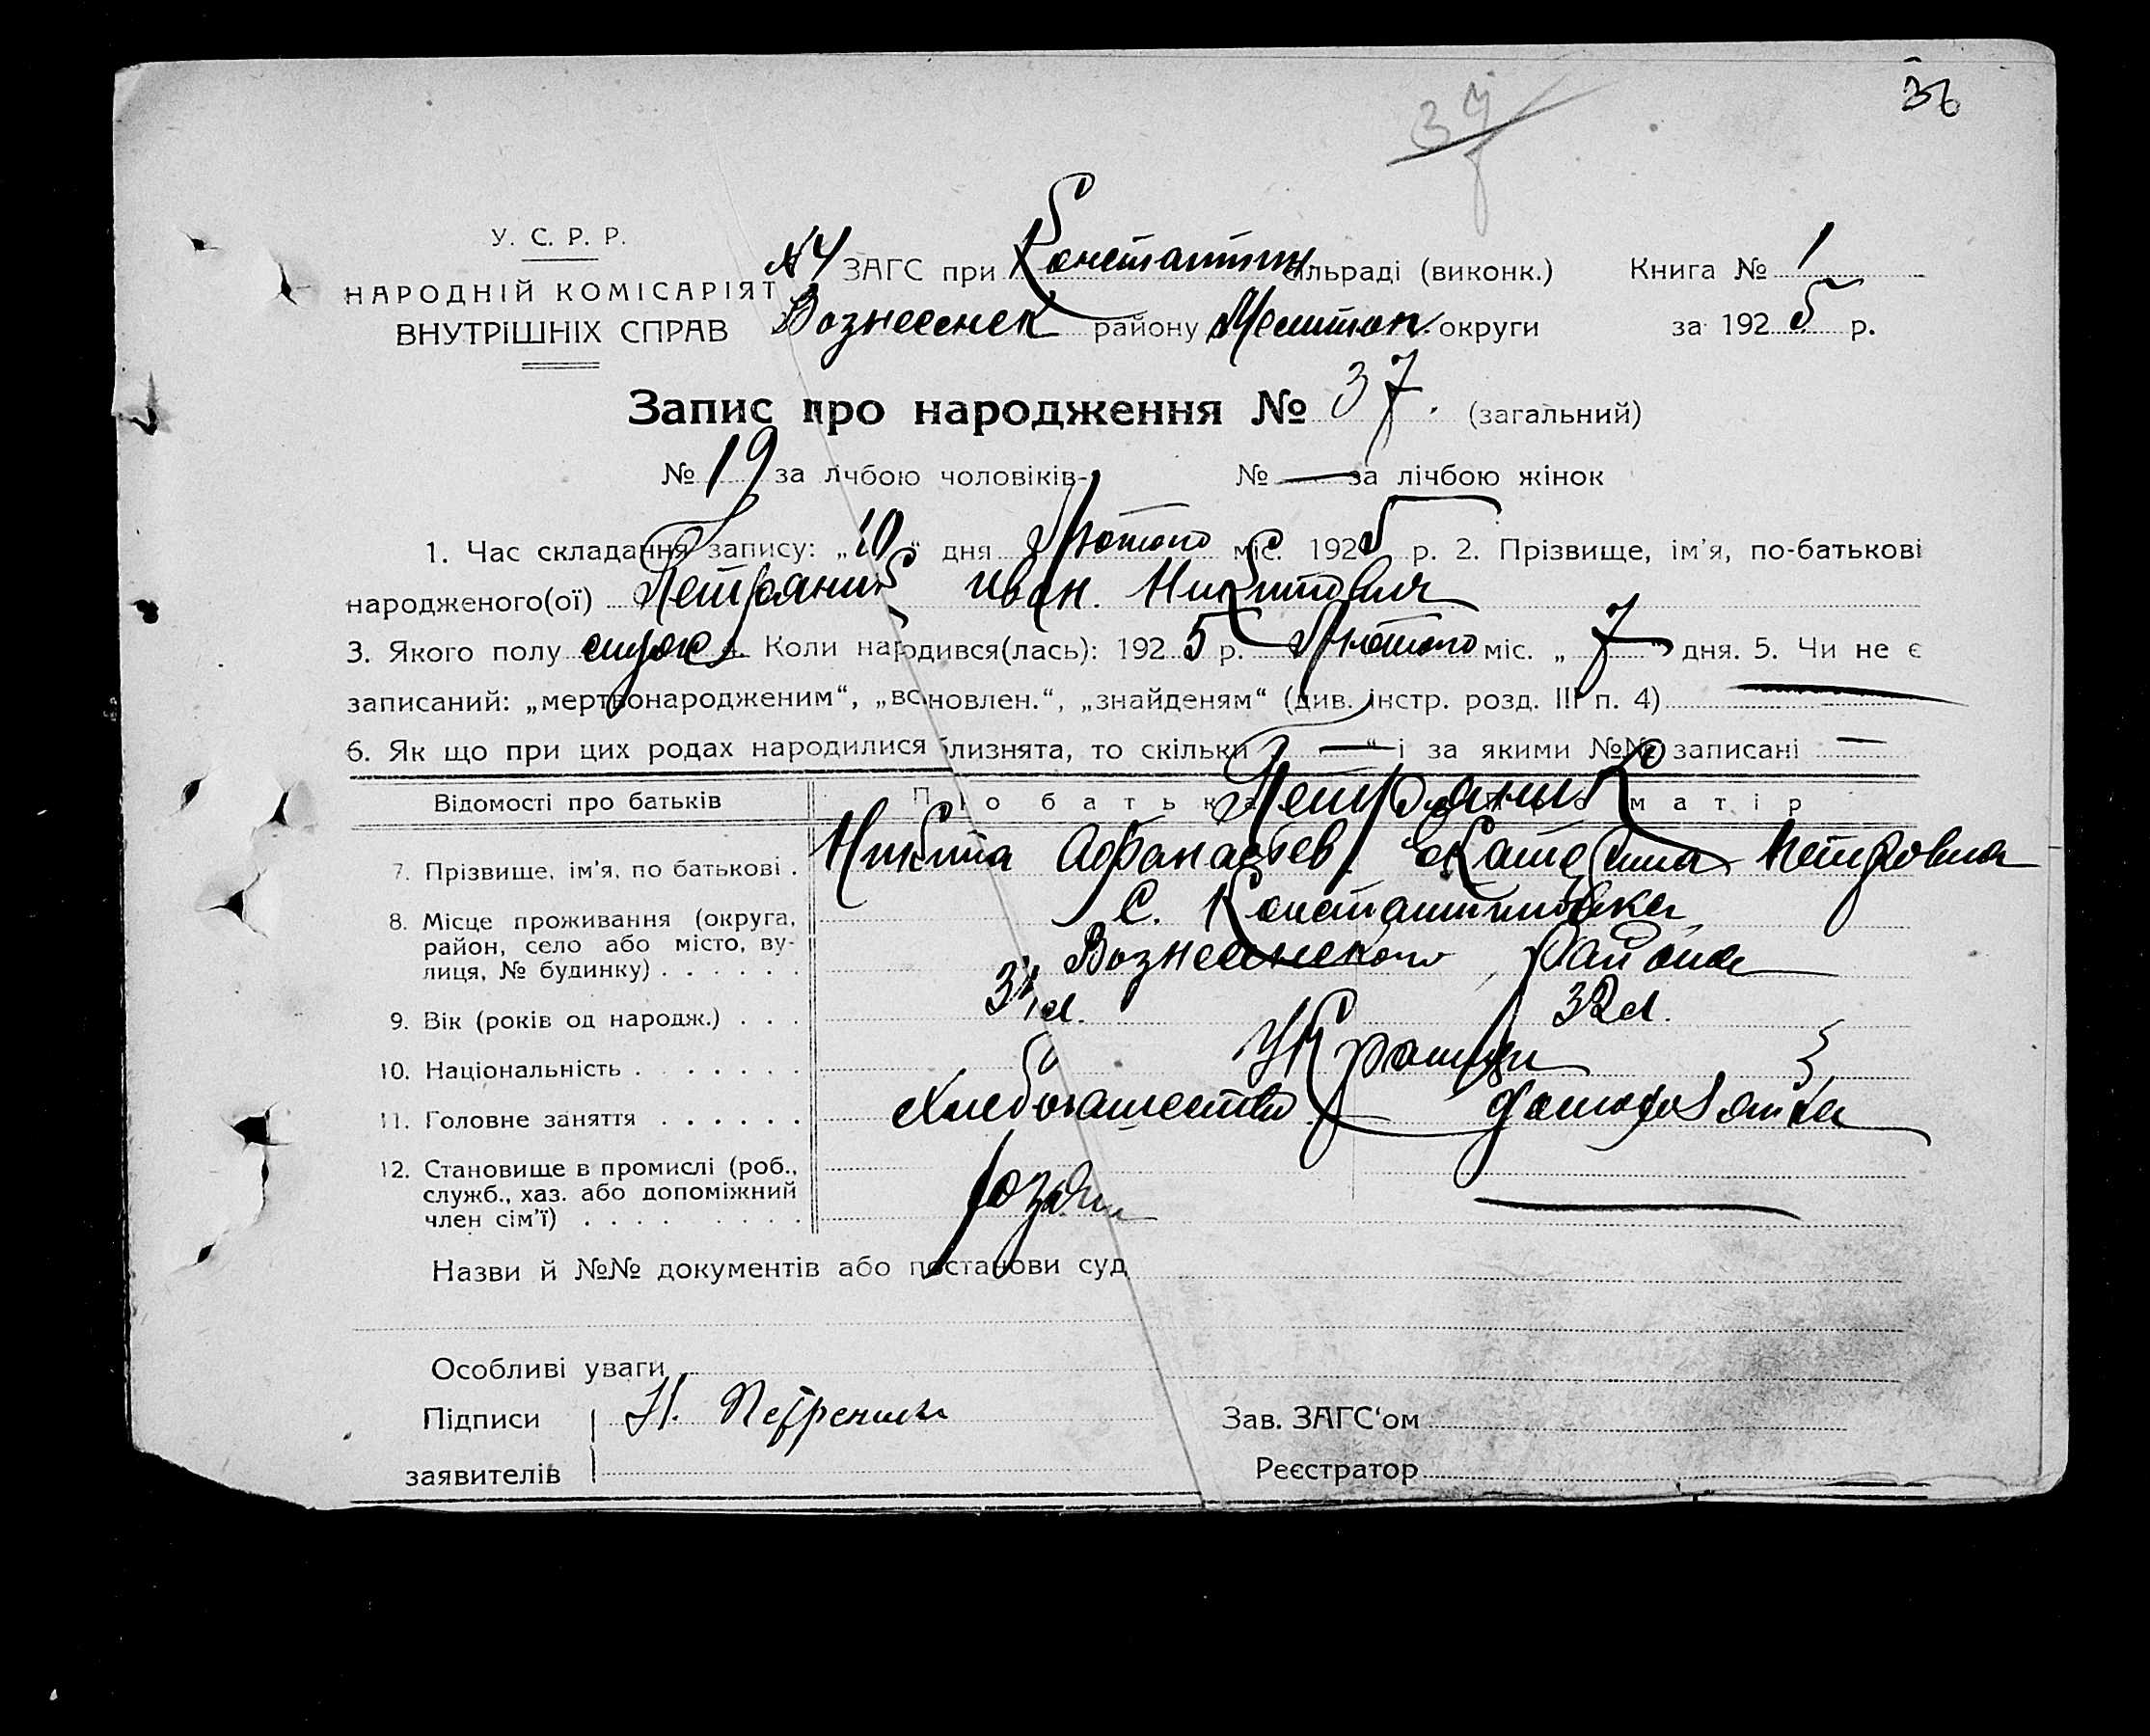 36
37
У. С. Р. Р.
НАРОДНІЙ КОМІСАРІЯТ
ВНУТРІШНІХ СПРАВ
№4 ЗАГС при Константин сільраді (виконк.) Книга № 1
Вознесенск району округи за 1925 р.
Запис про народження № 37. (загальний)
№ 19 за лічбою чоловіків- № — за лічбою жінок
1. Час складання запису: „10“ дня Лютого міс. 1925 р. 2. Прізвище, ім'я, по-батькові
народженого(ої) Петряник Иван Никитович
3. Якого полу 4. Коли народився(лась): 1925 р. Лютого міс. „7“ дня. 5. Чи не є
записаний: „мертвонародженим“, „встановлен.“, „знайденям“ (див. інстр. розд. III п. 4) —
6. Як що при цих родах народилися близнята, то скільки „—“ і за якими №№ записані —
Відомості про батьків Про батька Про матір
Петряник
7. Прізвище, ім'я, по батькові . Никита Афанасьев. Екатерина Петровна
8. Місце проживання (округа, С. Константиновка
район, село або місто, ву- Вознесенского района
лиця, № будинку) . . . . . .
9. Вік (років од народж.) . . . 32л.
10. Національність . . . . . . .
11. Головне заняття . . . . . . Хлебопашество
12. Становище в промислі (роб.,
служб., хаз. або допоміжний
член сім'ї) . . . . . . . . . —
Назви й №№ документів або постанови суд
Особливі уваги
Підписи Н.
заявителів
Зав. ЗАГС'ом
Реєстратор